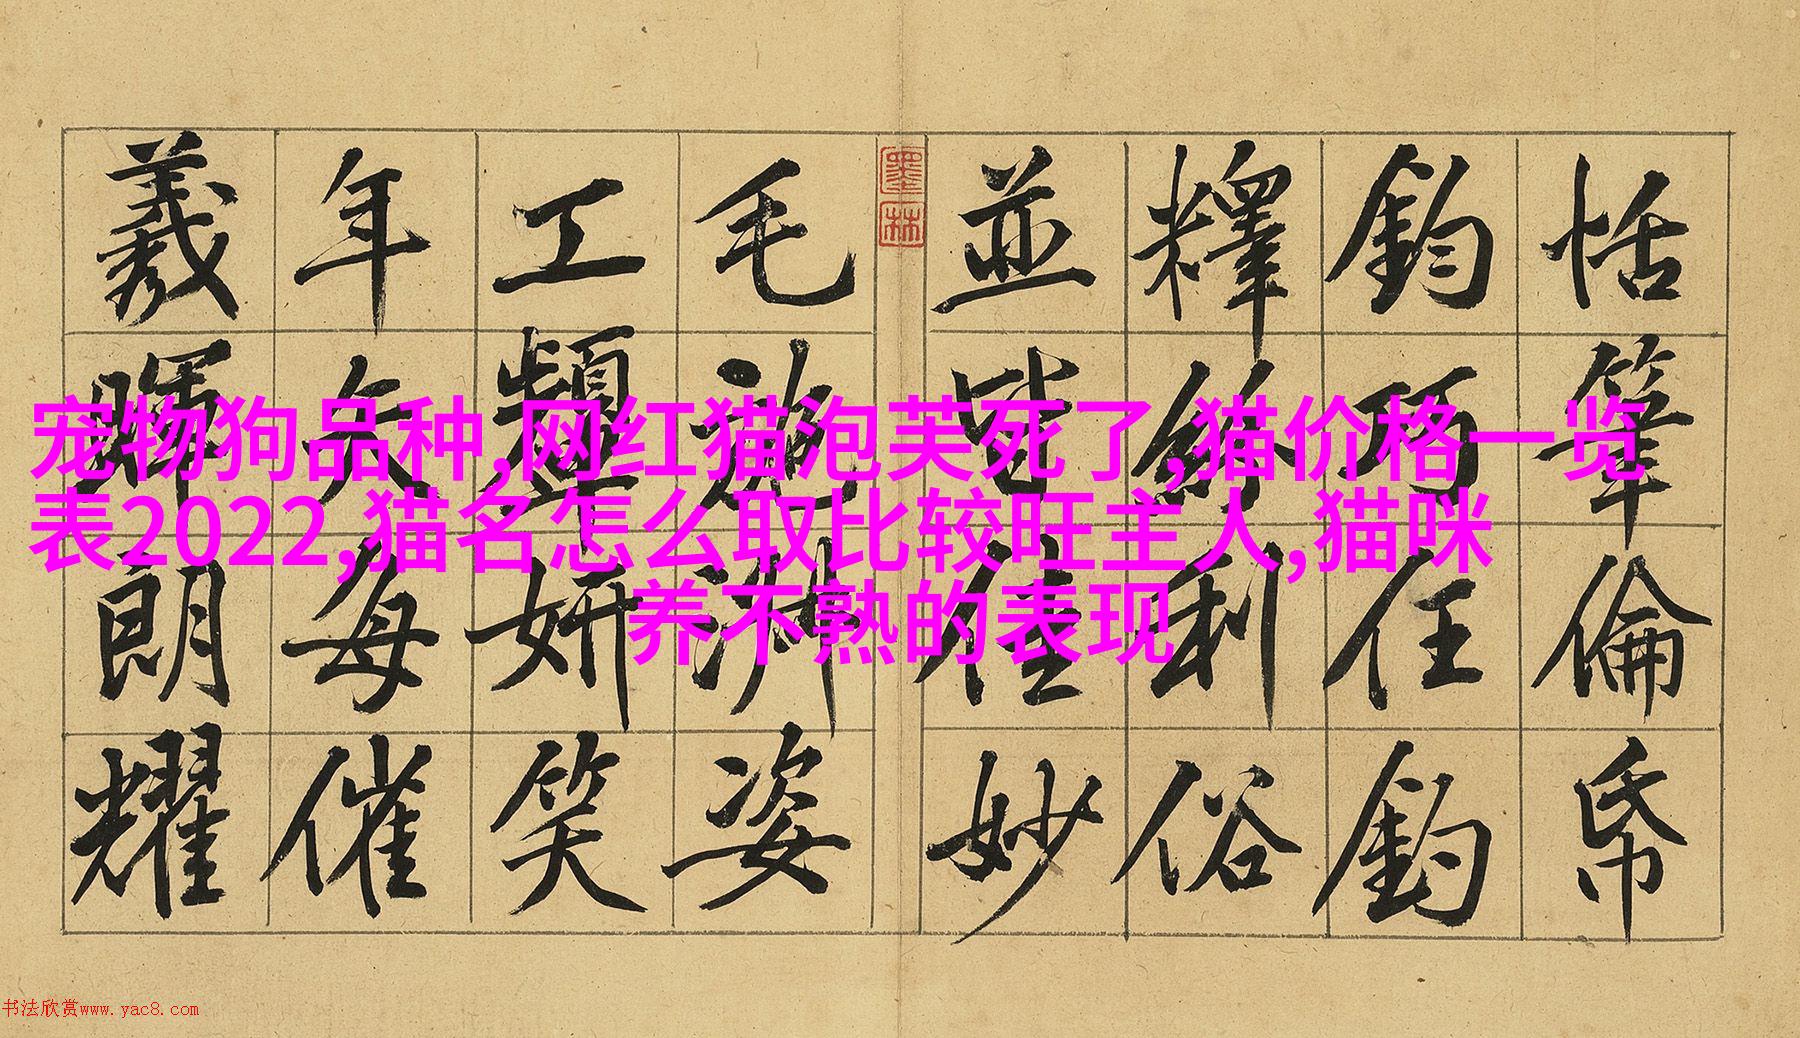 宠物狗品种,网红猫泡芙死了,猫价格一览
表2022,猫名怎么取比较旺主人,猫咪
养不熟的表现
恬筆倫帋
鈞巧任釣
釋紛利俗
並皆佳妙
墨林
毛施淑姿
工顰妍笑
年矢每催
羲暉朗耀
书法欣赏www.yac8.com